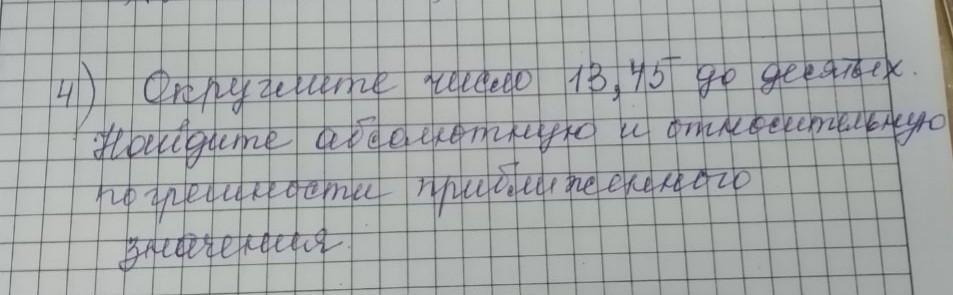 4) Округлите число 13,45 до десятых.
Найдите абсолютную и относительную
погрешности приближенного
значения.